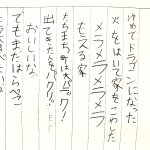 ゆめでドラゴンになった
火をはいて家をこわした
メラメラメラメラ
もえる家
たちまち町は大パニック!
出てきた人をパクリ。
おいしいな。
でもまたはらぺこ